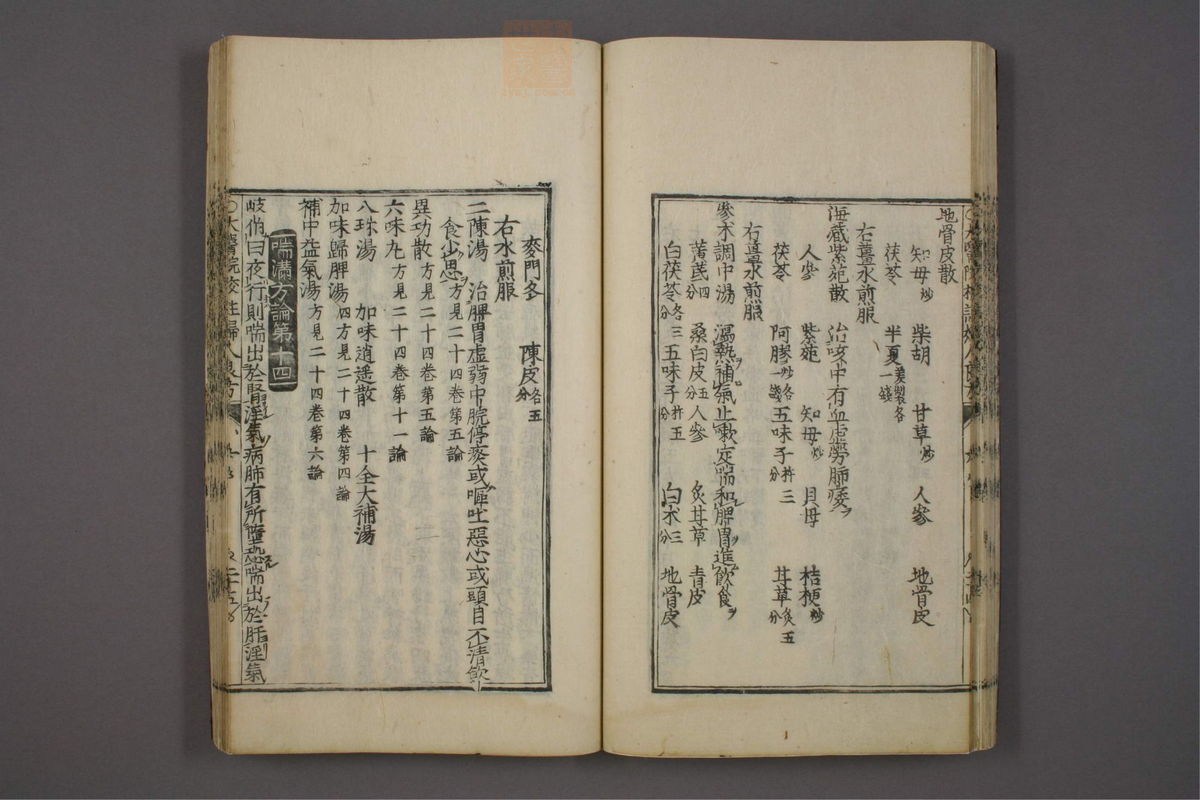 地骨皮散
知母炒 柴胡 甘草炒 人參 地骨皮
茯苓 半夏姜製各一錢
右薑水煎服
海藏紫菀散 治咳中有血虛勞肺痿
人參 紫菀 知母炒 貝母 桔梗炒
茯苓 阿膠炒各一錢 五味子杵三分 甘草炙五分
右薑水煎服
參朮調中湯 瀉熱補氣止嗽定喘和脾胃進飲食
黃芪四分 桑白皮五分 人參 炙甘草 青皮
白茯苓各三分 五味子杵五分 白朮三分 地骨皮
麥門冬 陳皮各五分
右水煎服
二陳湯 治脾胃虛弱中脘停痰或嘔吐惡心或頭目不清飲
食少思方見二十四卷第五論
異功散方見二十四卷第五論
六味丸方見二十四卷第十一論
八珎湯 加味逍遥散 十全大補湯
加味歸脾湯四方見二十四卷第四論
補中益氣湯方見二十四卷第六論
喘滿方論第十四
岐伯曰夜行則喘出於腎淫氣病肺有所墮恐喘出於肝淫氣
〇太醫院校註婦人良方